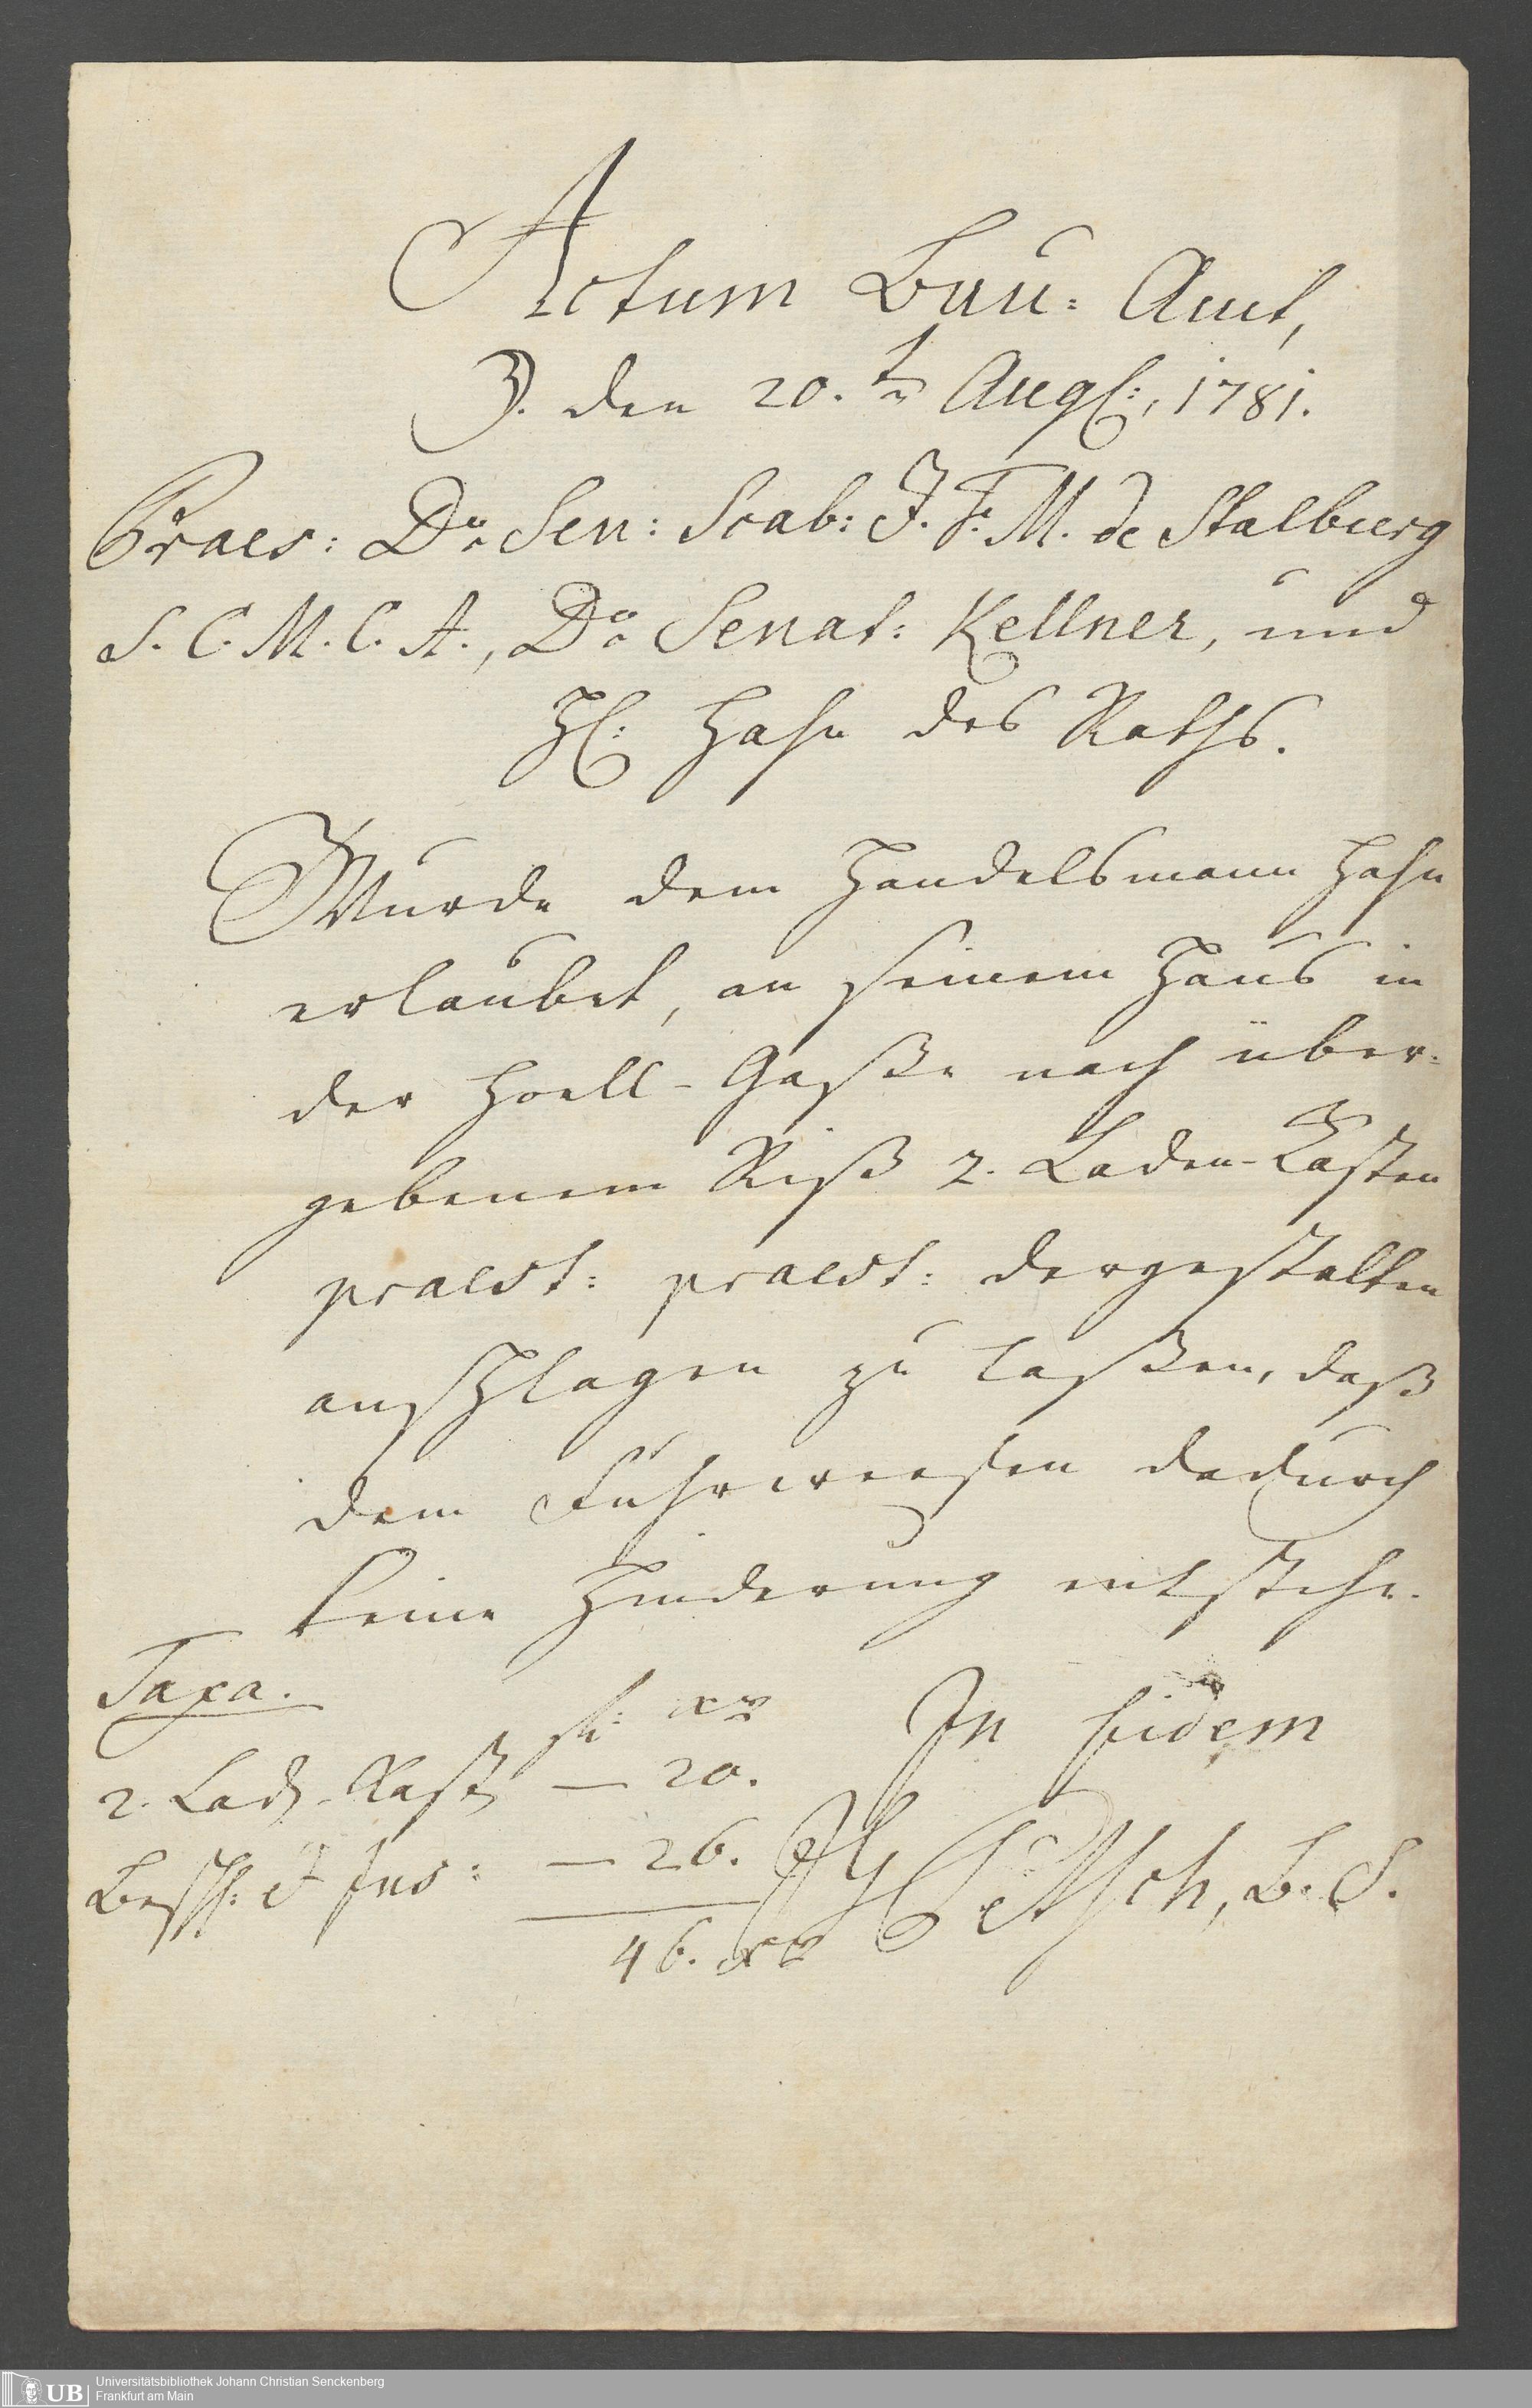 Actum Bau=Amt,
D. den 20.ten Augs:, 1781.
Praes: Dno Sen: Scab: J. F. M. de Stalburg
S. C. M. C. A., Dno Senat: Kellner, und
H: Hahn des Raths.
Wurde dem Handelsmann Hahn
erlaubet, an seinem Haus in
der Hoell-Gaße nach über=
gebenem Riß 2. Laden-Kasten
praest: praest: dergestalten
anschlagen zu laßen, daß
dem Fuhrweesen dadurch
keine Hinderung entstehe.
Taxa.
fl: xr
2. Lad. Kast – 20.
Besch: & Ins: – 26.
46. xr
In fidem
Petsch, B. S.
Universitätsbibliothek Johann Christian Senckenberg
UB Frankfurt am Main